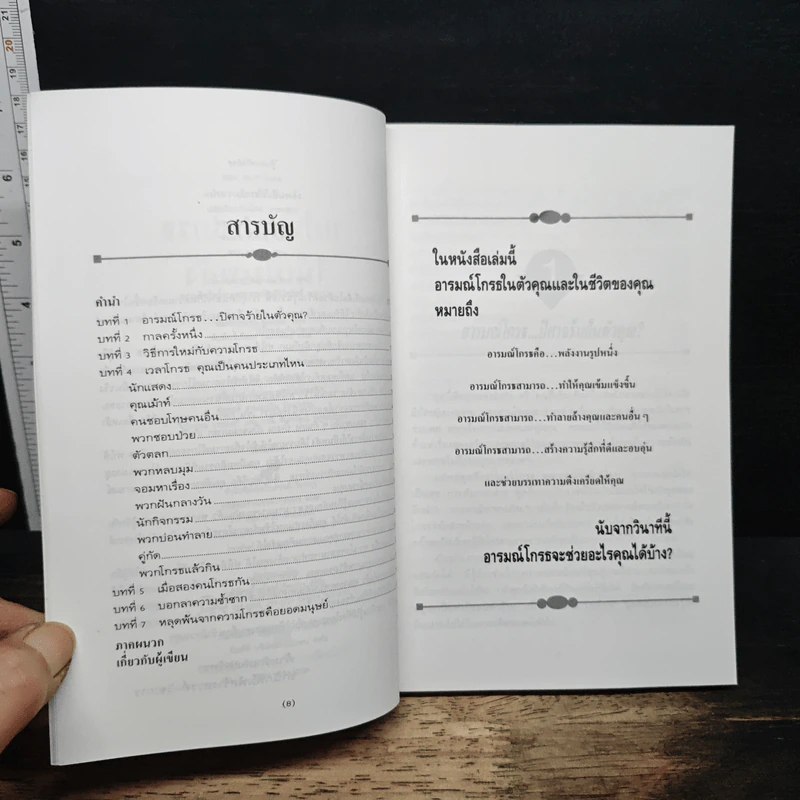 สารบัญ
คำนำ
บทที่ 1 อารมณ์โกรธ...ปีศาจร้ายในตัวคุณ?
บทที่ 2 กาลครั้งหนึ่ง
บทที่ 3 วิธีการใหม่กับความโกรธ
บทที่ 4 เวลาโกรธ คุณเป็นคนประเภทไหน
นักแสดง
คุณเม้าท์
คนชอบโทษคนอื่น
พวกชอบป่วย
ตัวตลก
พวกหลบมุม
จอมหาเรื่อง
พวกฝันกลางวัน
นักกิจกรรม
พวกบ่อนทำลาย
คู่กัด
พวกโกรธแล้วกิน
บทที่ 5 เมื่อสองคนโกรธกัน
บทที่ 6 บอกลาความซ้ำซาก
บทที่ 7 หลุดพ้นจากความโกรธคือยอดมนุษย์
ภาคผนวก
เกี่ยวกับผู้เขียน
(8)
ในหนังสือเล่มนี้
อารมณ์โกรธในตัวคุณและในชีวิตของคุณ
หมายถึง
อารมณ์โกรธคือ...พลังงานรูปหนึ่ง
อารมณ์โกรธสามารถ...ทำให้คุณเข้มแข็งขึ้น
อารมณ์โกรธสามารถ...ทำลายล้างคุณและคนอื่น ๆ
อารมณ์โกรธสามารถ...สร้างความรู้สึกที่ดีและอบอุ่น
และช่วยบรรเทาความตึงเครียดให้คุณ
นับจากวินาทีนี้
อารมณ์โกรธจะช่วยอะไรคุณได้บ้าง?